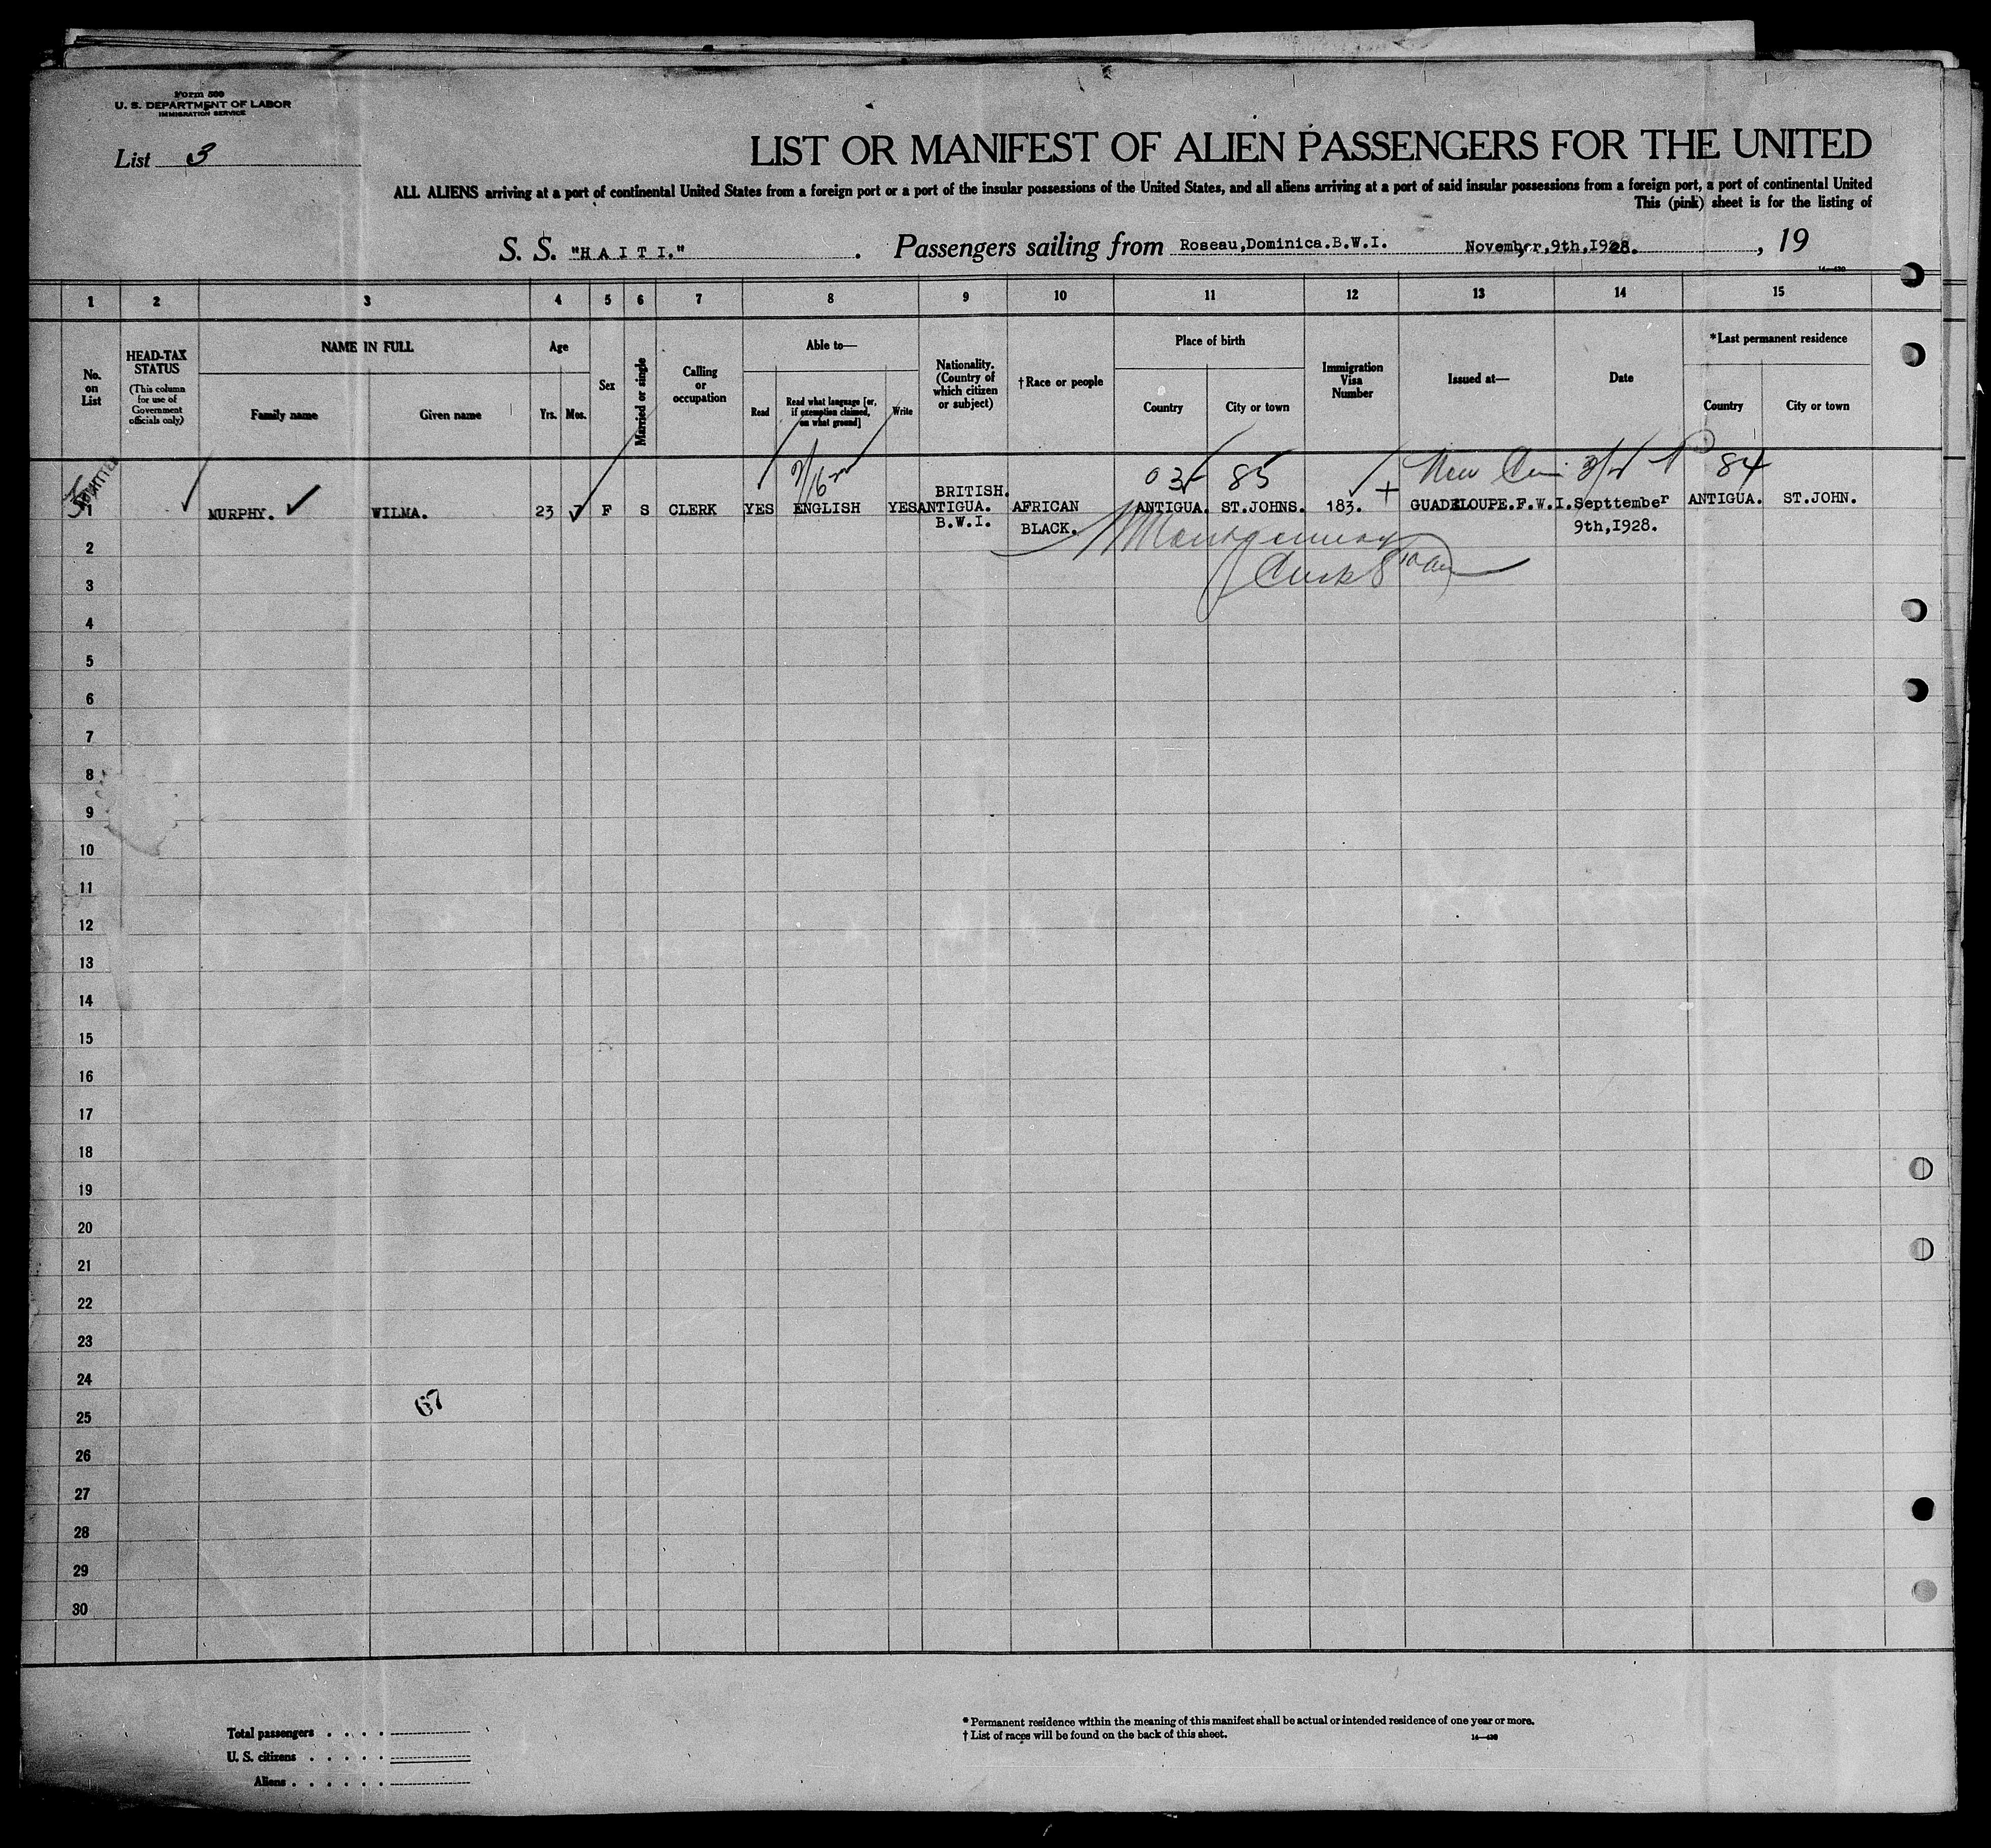 Form 500
U. S. DEPARTMENT OF LABOR
IMMIGRATION SERVICE
List 3
LIST OR MANIFEST OF ALIEN PASSENGERS FOR THE UNITED
ALL ALIENS arriving at a port of continental United States from a foreign port or a port of the insular possessions of the United States, and all aliens arriving at a port of said insular possessions from a foreign port, a port of continental United
This (pink) sheet is for the listing of
S. S. "HAITI." . Passengers sailing from Roseau,Dominica.B.W.I. November,9th,I928. , 19
14—430
1 2 3 4 5 6 7 8 9 10 11 12 13 14 15
No. on List
HEAD-TAX STATUS
(This column for use of Government officials only)
NAME IN FULL
Family name Given name
Age
Yrs. Mos.
Sex
Married or single
Calling or occupation
Able to—
Read
Read what language [or, if exemption claimed, on what ground]
Write
Nationality. (Country of which citizen or subject)
†Race or people
Place of birth
Country City or town
Immigration Visa Number
Issued at—
Date
*Last permanent residence
Country City or town
03 85 84
1 MURPHY. WILMA. 23 7 F S CLERK YES ENGLISH YES BRITISH. ANTIGUA. B.W.I. AFRICAN BLACK. ANTIGUA. ST.JOHNS. 183. GUADELOUPE.F.W.I. Septtember 9th,I928. ANTIGUA. ST.JOHN.
2
3
4
5
6
7
8
9
10
11
12
13
14
15
16
17
18
19
20
21
22
23
24
67
25
26
27
28
29
30
Total passengers . . . .
U. S. citizens . . . . .
Aliens . . . . . .
* Permanent residence within the meaning of this manifest shall be actual or intended residence of one year or more.
† List of races will be found on the back of this sheet.
14—430